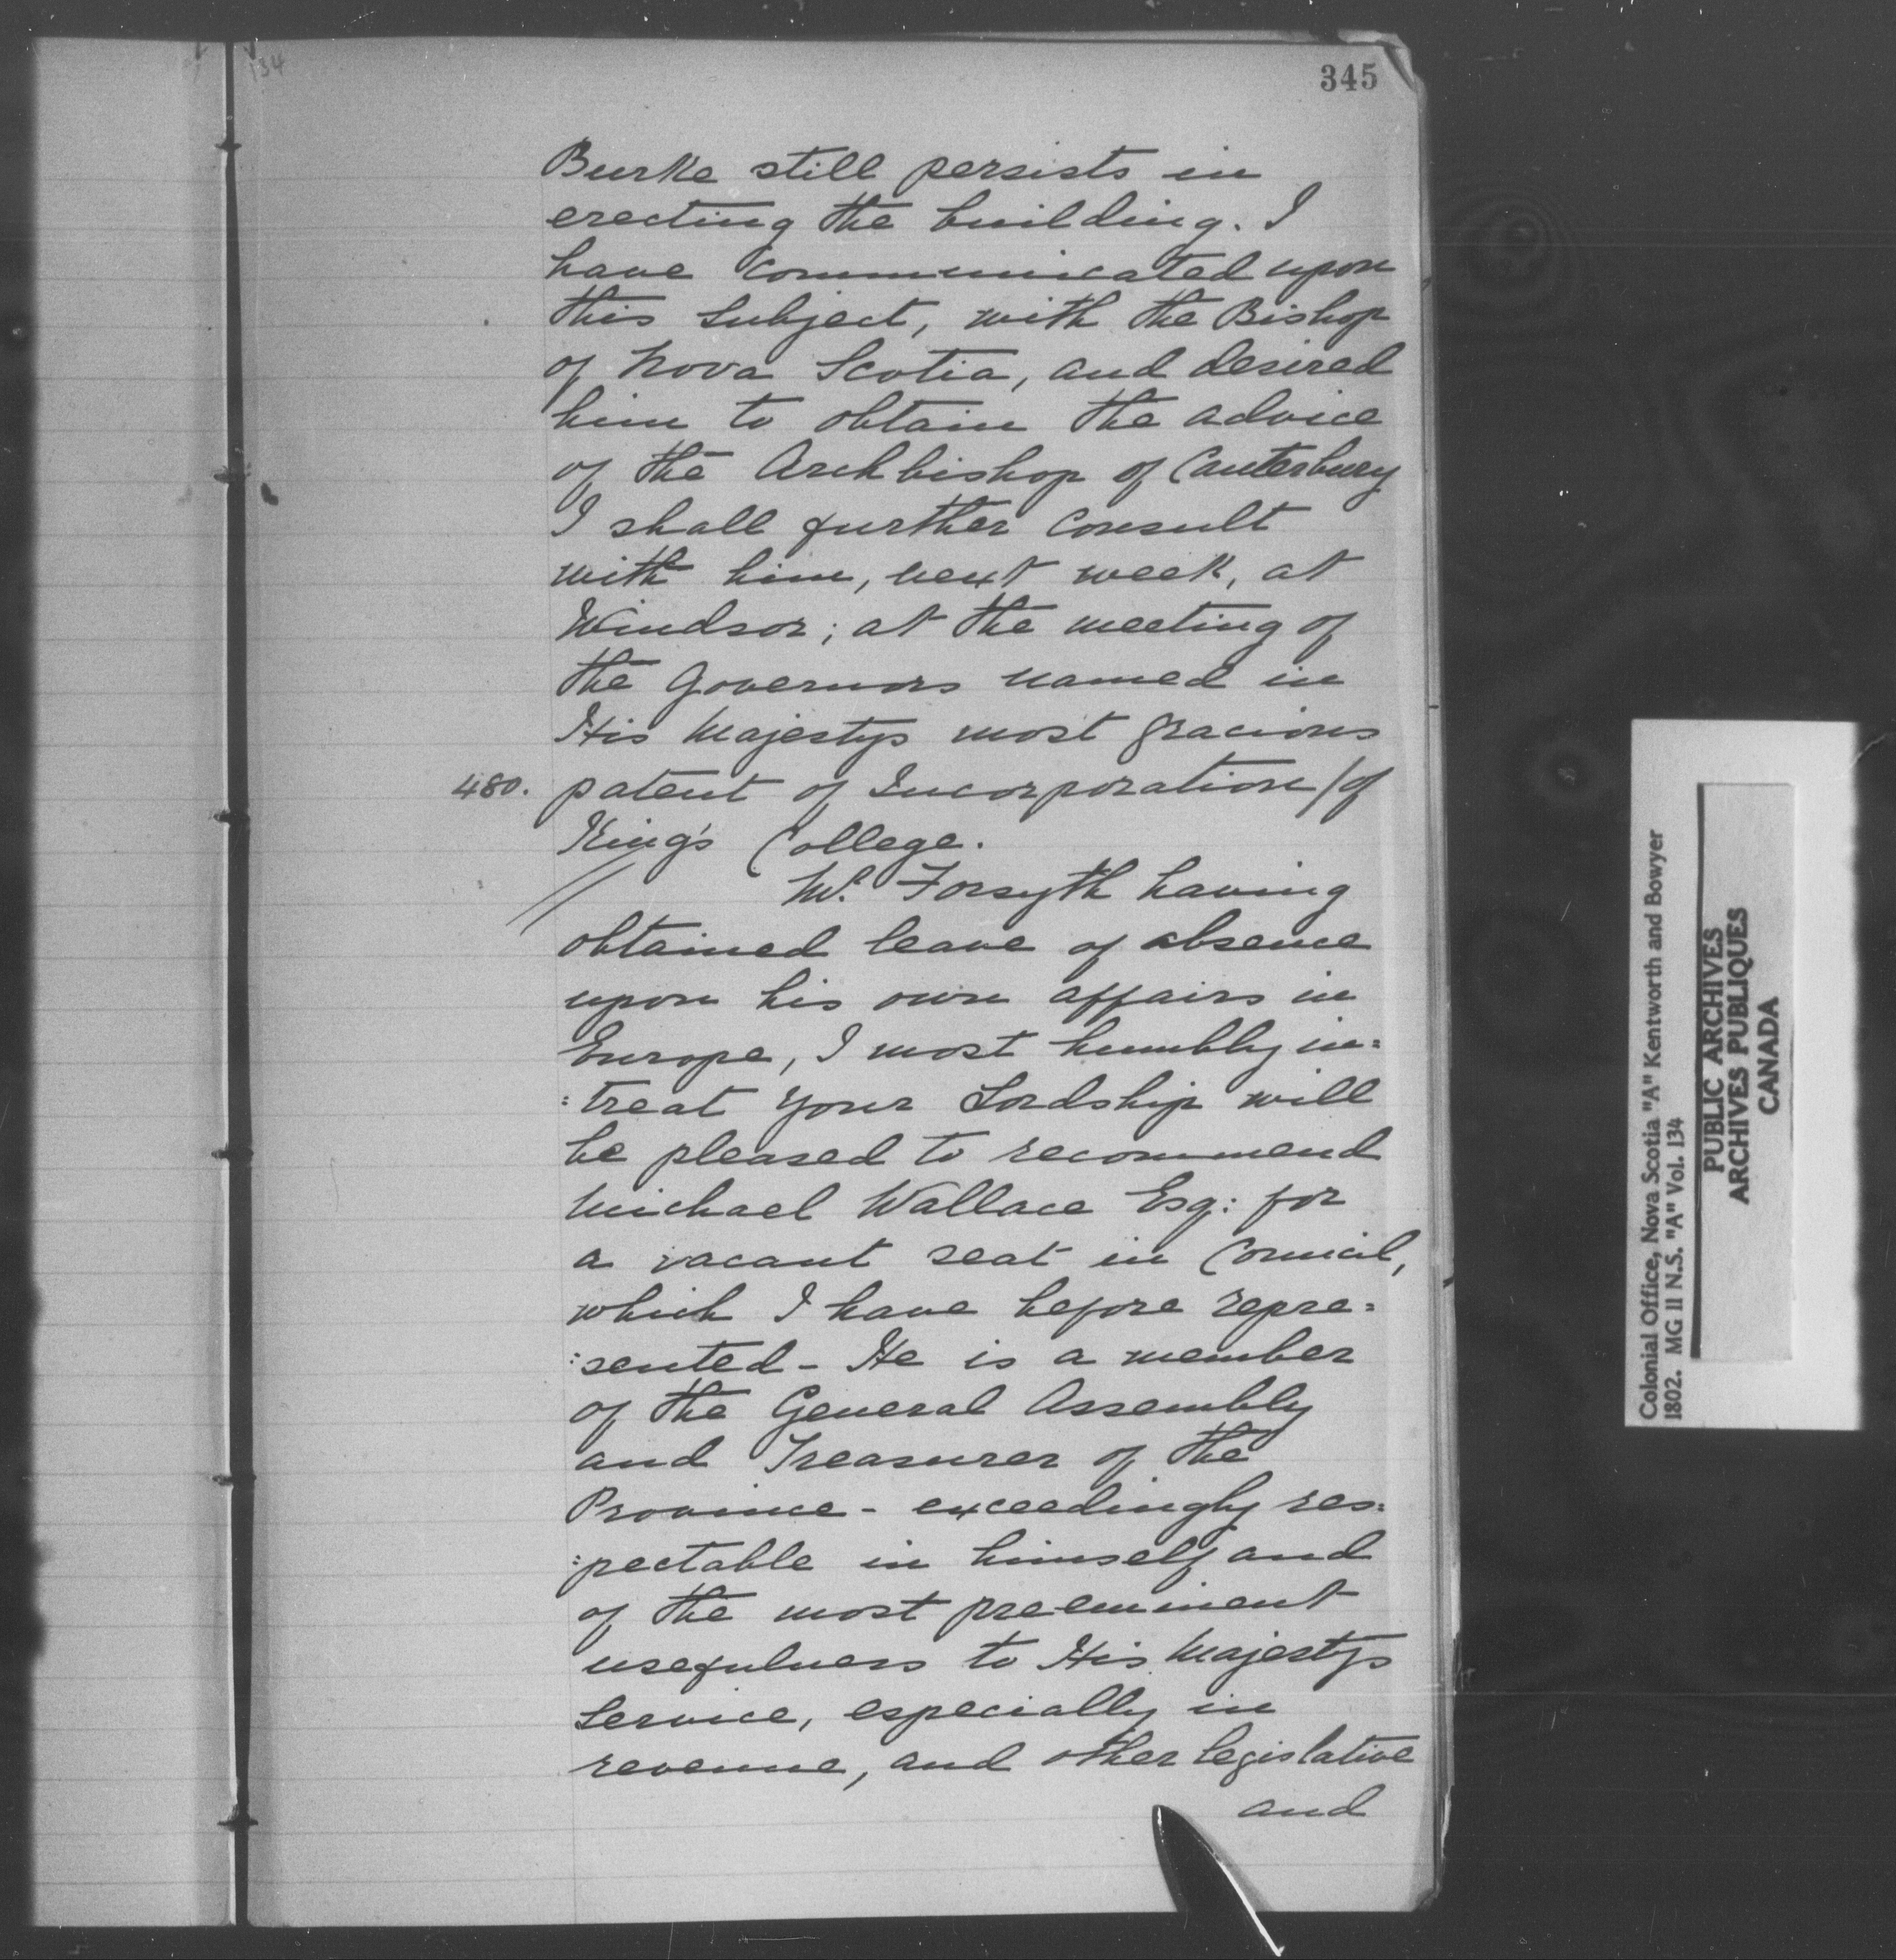 134
345
Burke still persists in
erecting the building. I
have communicated upon
this subject, with the Bishop
of Nova Scotia, and desired
him to obtain the advice
of the Archbishop of Canterbury
I shall further consult
with him, next week, at
Windsor; at the meeting of
the Governors named in
His Majestys most gracious
480. patent of Incorporation / of
King's College.
Mr. Forsyth having
obtained leave of absence
upon his own affairs in
Europe, I most humbly in=
=treat your Lordship will
be pleased to recommend
Michael Wallace Esq: for
a vacant seat in Council,
which I have before repre=
=sented - He is a member
of the General Assembly
and Treasurer of the
Province - exceedingly res=
=pectable in himself and
of the most preeminent
usefulness to His Majestys
Service, especially in
revenue, and other legislative
and
Colonial Office, Nova Scotia "A" Kentworth and Bowyer
1802. MG 11 N.S. "A" Vol. 134
PUBLIC ARCHIVES
ARCHIVES PUBLIQUES
CANADA